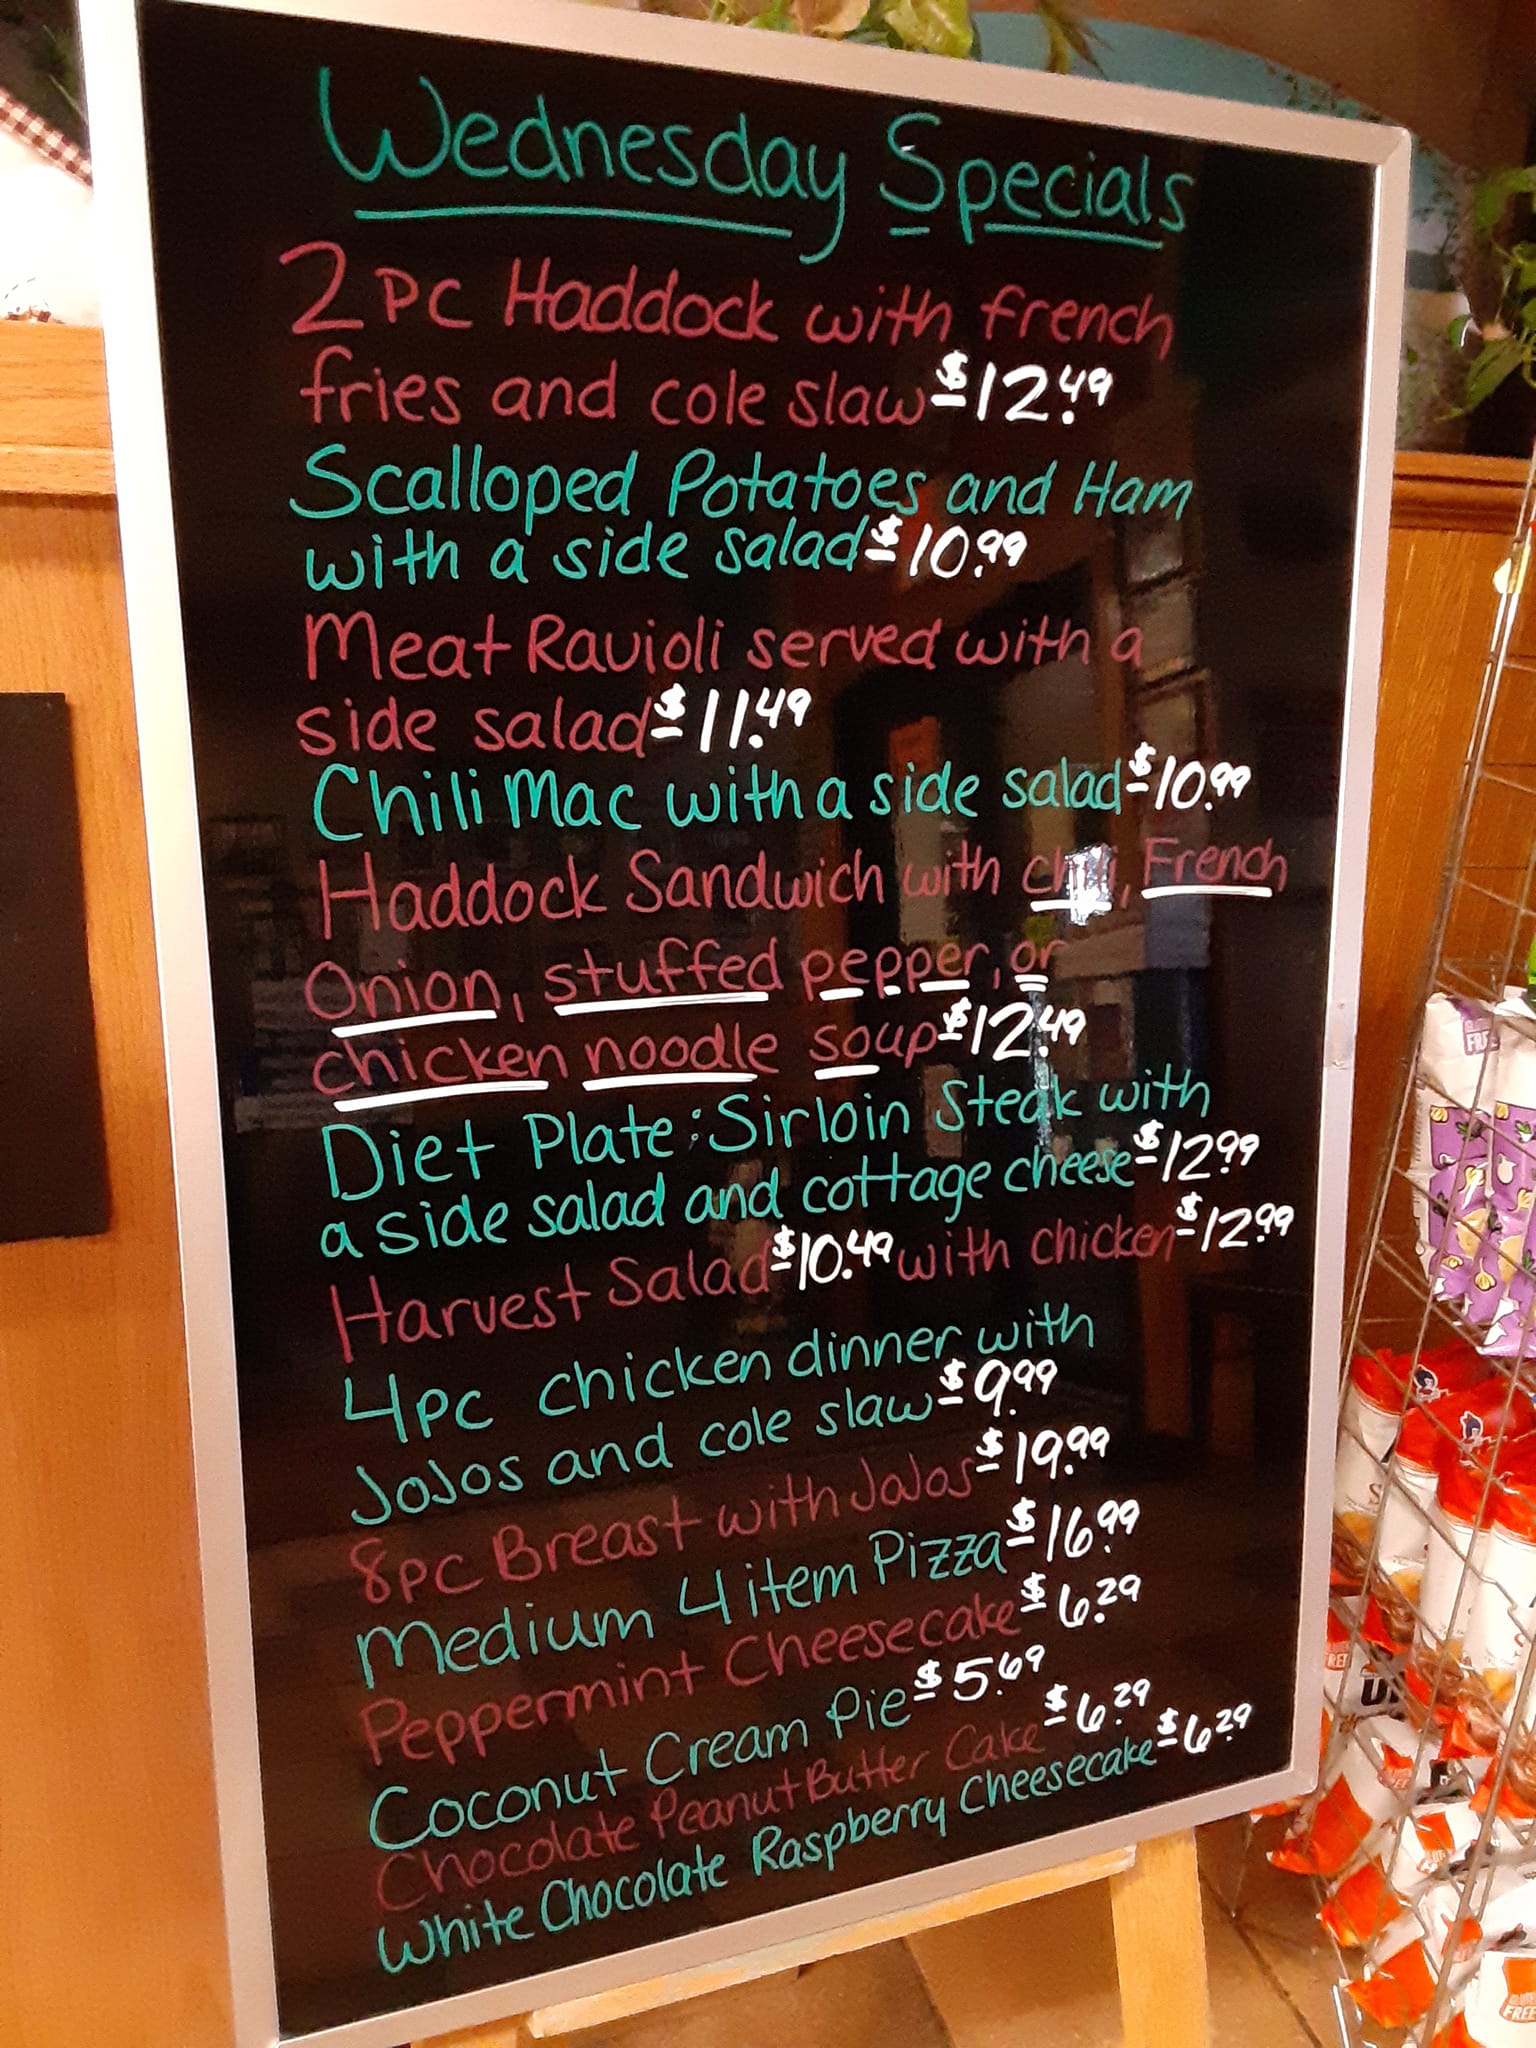 Wednesday Specials
2 PC Haddock with french
fries and cole slaw $12.49
Scalloped Potatoes and Ham
with a side salad $10.99
Meat Ravioli served with a
side salad $11.49
Chili Mac with a side salad $10.99
Haddock Sandwich with chili, French
Onion, stuffed pepper, or
chicken noodle soup $12.49
Diet Plate: Sirloin Steak with
a side salad and cottage cheese $12.99
Harvest Salad $10.49 with chicken $12.99
4pc chicken dinner with
JoJos and cole slaw $9.99
8pc Breast with JoJos $19.99
Medium 4 item Pizza $16.99
Peppermint Cheesecake $6.29
Coconut Cream Pie $5.69
Chocolate Peanut Butter Cake $6.29
White Chocolate Raspberry Cheesecake $6.29
FREE